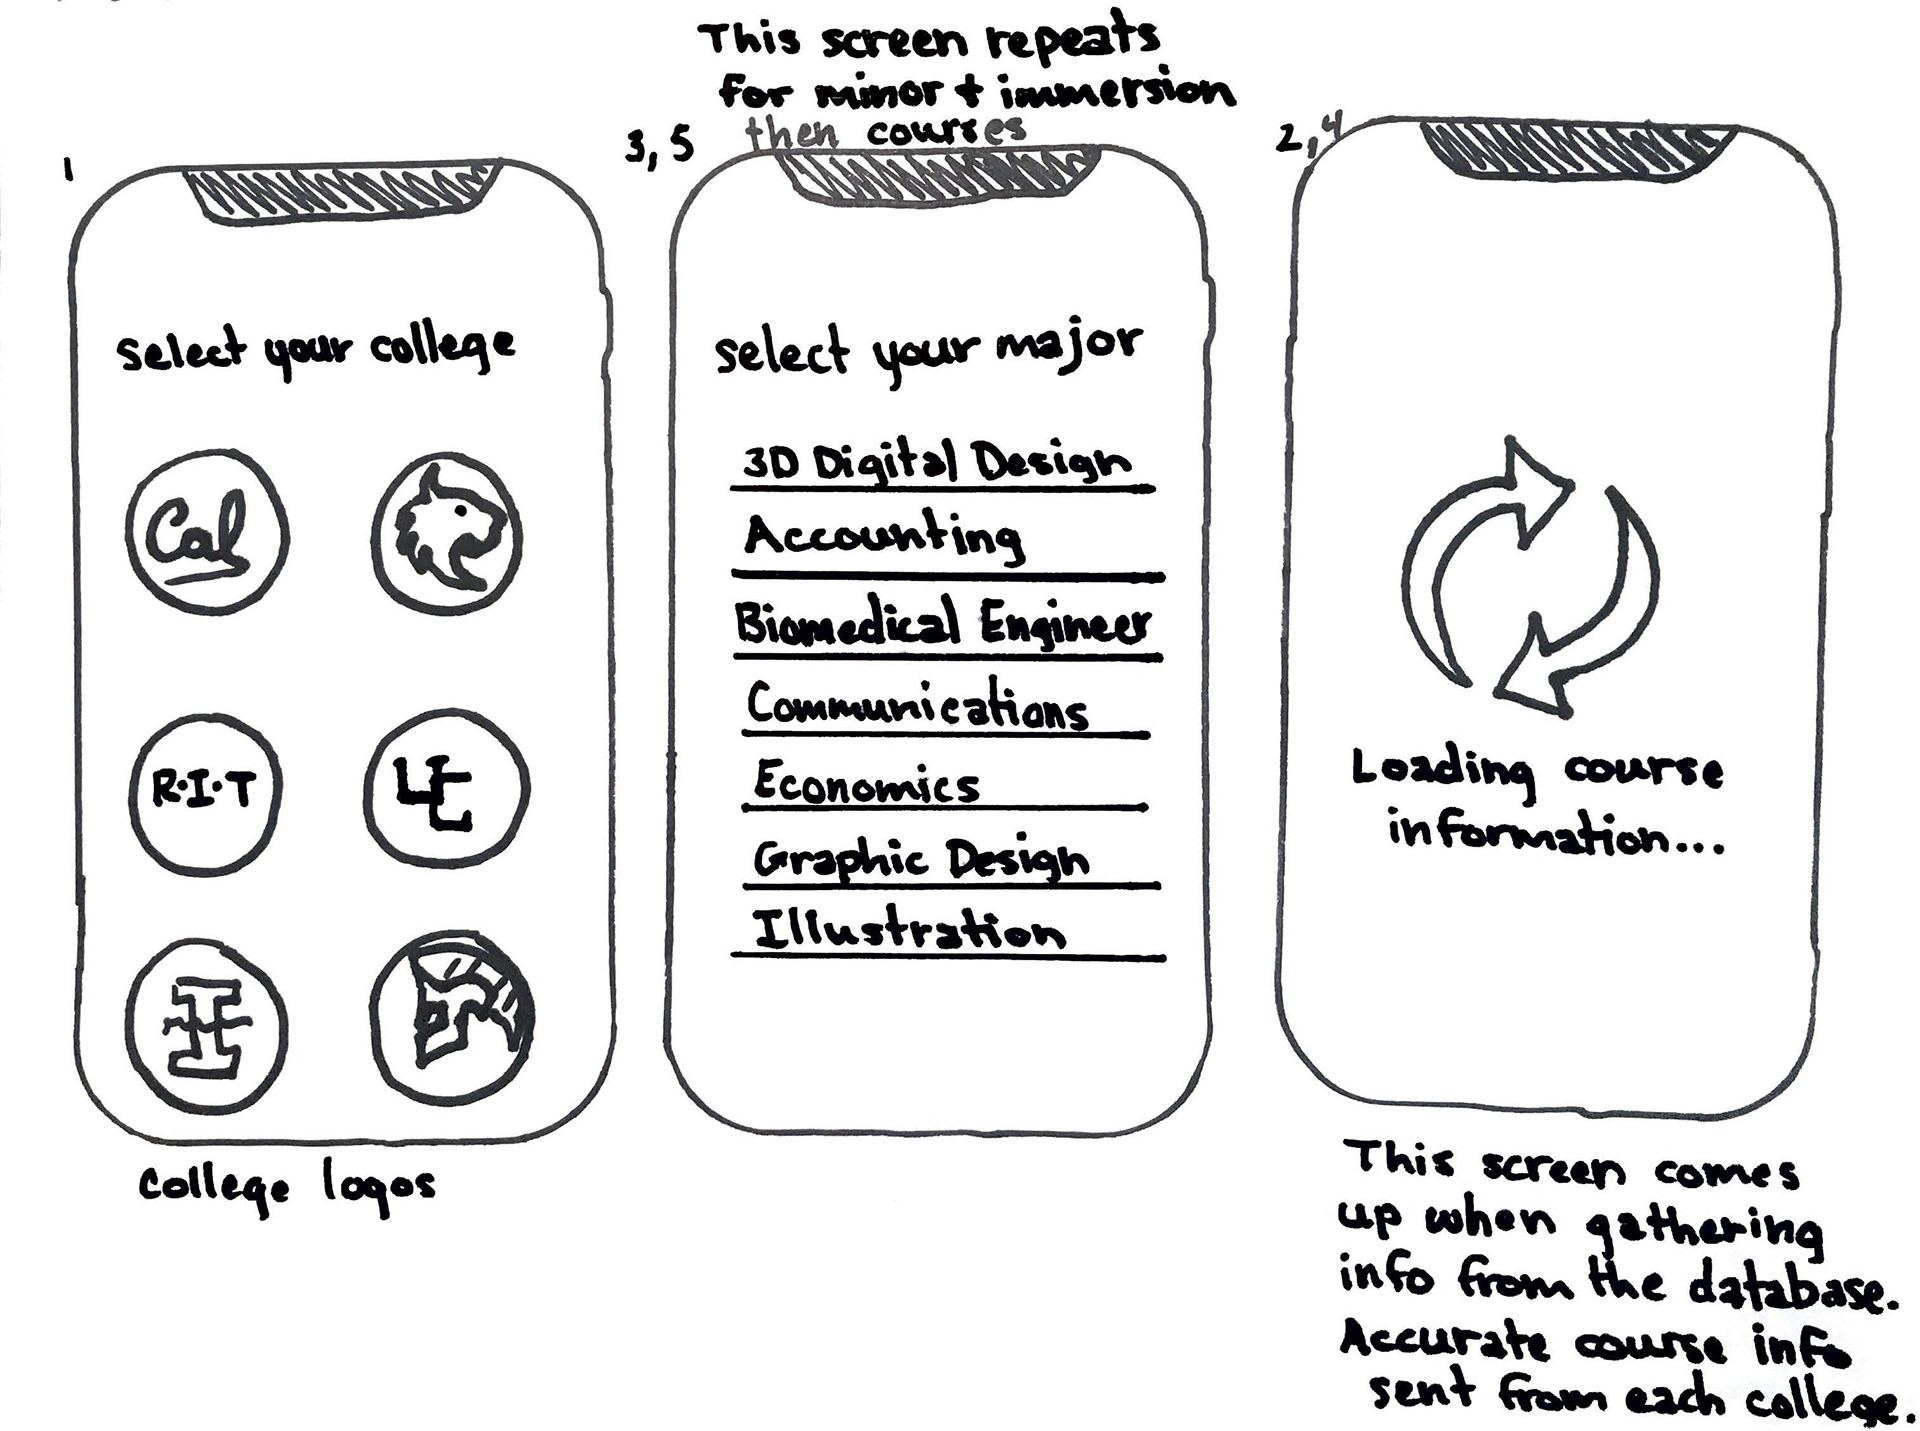 This screen repeats
for minor + immersion
then courses
1
select your college
Cal
R·I·T
UC
I
college logos
3, 5
select your major
3D Digital Design
Accounting
Biomedical Engineer
Communications
Economics
Graphic Design
Illustration
2, 4
Loading course
information...
This screen comes
up when gathering
info from the database.
Accurate course info
sent from each college.